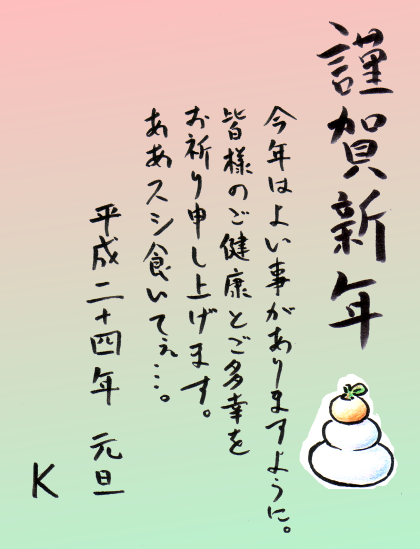 謹賀新年
今年はよい事がありますように。
皆様のご健康とご多幸を
お祈り申し上げます。
ああスシ食いてぇ…。
平成二十四年 元旦
K